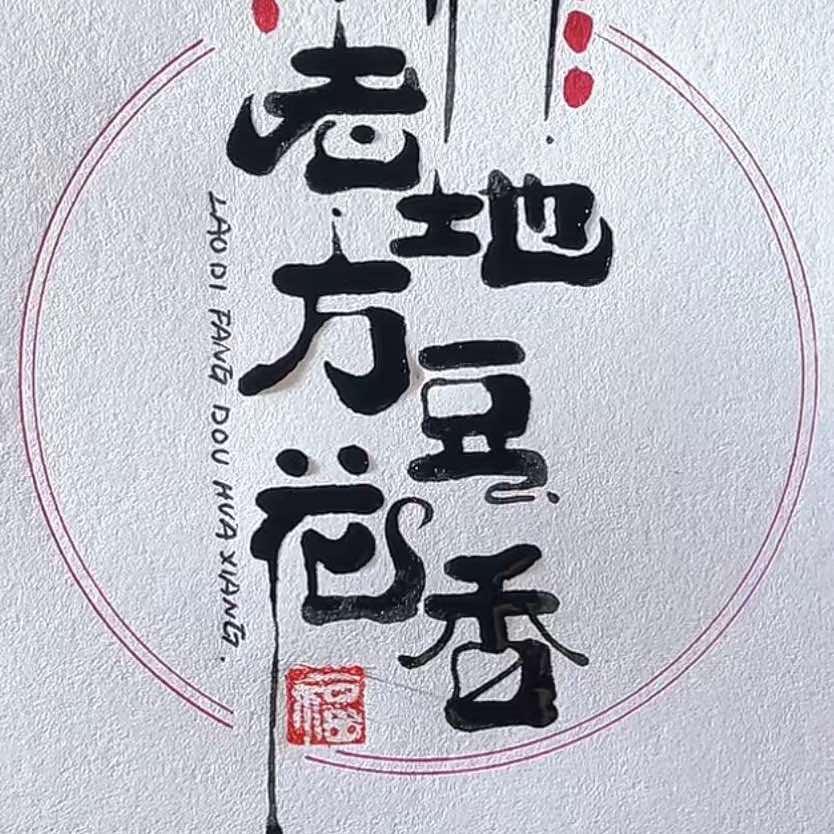 老地方豆花香
LAO DI FANG DOU HUA XIANG.